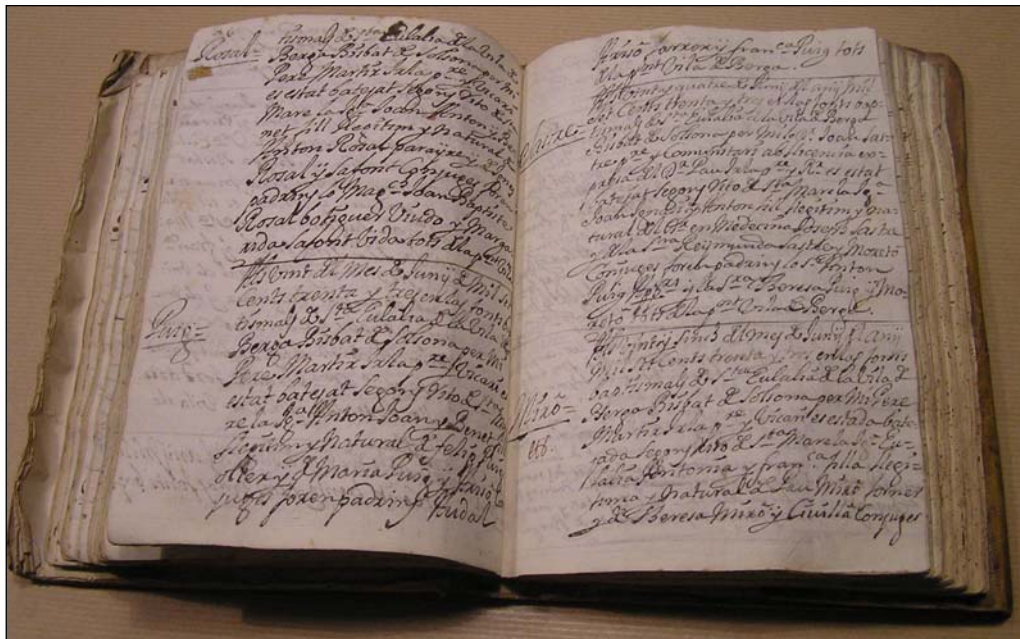 Rosal=
tismals de Sta Eulalia de la Vila de
Berga Bisbat de Solsona per Mi
Pere Martir Isla pre y Vicari
es estat batejat segons rito de Sta
Mare la Iga Joan Anton y Be
net fill llegitim y natural de
Anton Rosal parayre y de
Rosal y Safont Conjuges foren
padrins lo Magch Joan Baptista
Rosal botiguer Viudo y Marga
rida Safont Vida tots de la pnt Vila
Als Vint del Mes de Juny de Mil set
Cents trenta y tres en las fonts bap
Puig=
tismals de Sta Eulalia de la Vila de
Berga Bisbat de Solsona per Mi
Pere Martir Isla pre y Vicari es
estat batejat segons rito de Sta Ma
re la Iga Anton Joan y Benet fill
llegitim y natural de Felip Puig
y de Maria Puig y
juges foren padrins Vidal
y Franca Puig tots
de la pnt Vila de Berga.
Als Vint y quatre de Juny del any mil
set Cents trenta y tres en las fonts bap
Sastre=
tismals de Sta Eulalia de la Vila de Berga
Bisbat de Solsona per Mi lo Rt Joan Sas
tre pre y Comunitari ab llicencia ex
pressa del Dr Pau Isla pre y Rr es estat
batejat segons rito de Sta Mare la Iga
Joan Anton fill llegitim y na
tural del en Medecina Joseph Sastre
y de la Sra Reymunda Sastre y Moretó
Conjuges foren padrins lo Sr Anton
Puig y la Sra Theresa Puig y Mo
retó tots de la pnt Vila de Berga.
Als Vint y sinch del mes de Juny del any
Mil set Cents trenta y tres en las fonts
baptismals de Sta Eulalia de la Vila de
Miró=
Berga Bisbat de Solsona per Mi Pere
Martir Isla pre y Vicari es estada bate
jada segons rito de Sta Mare la Iga Eu
lalia Antonia y Franca filla llegi=
tima y natural de Pau Miró forner
y de Theresa Miró y Conjuges